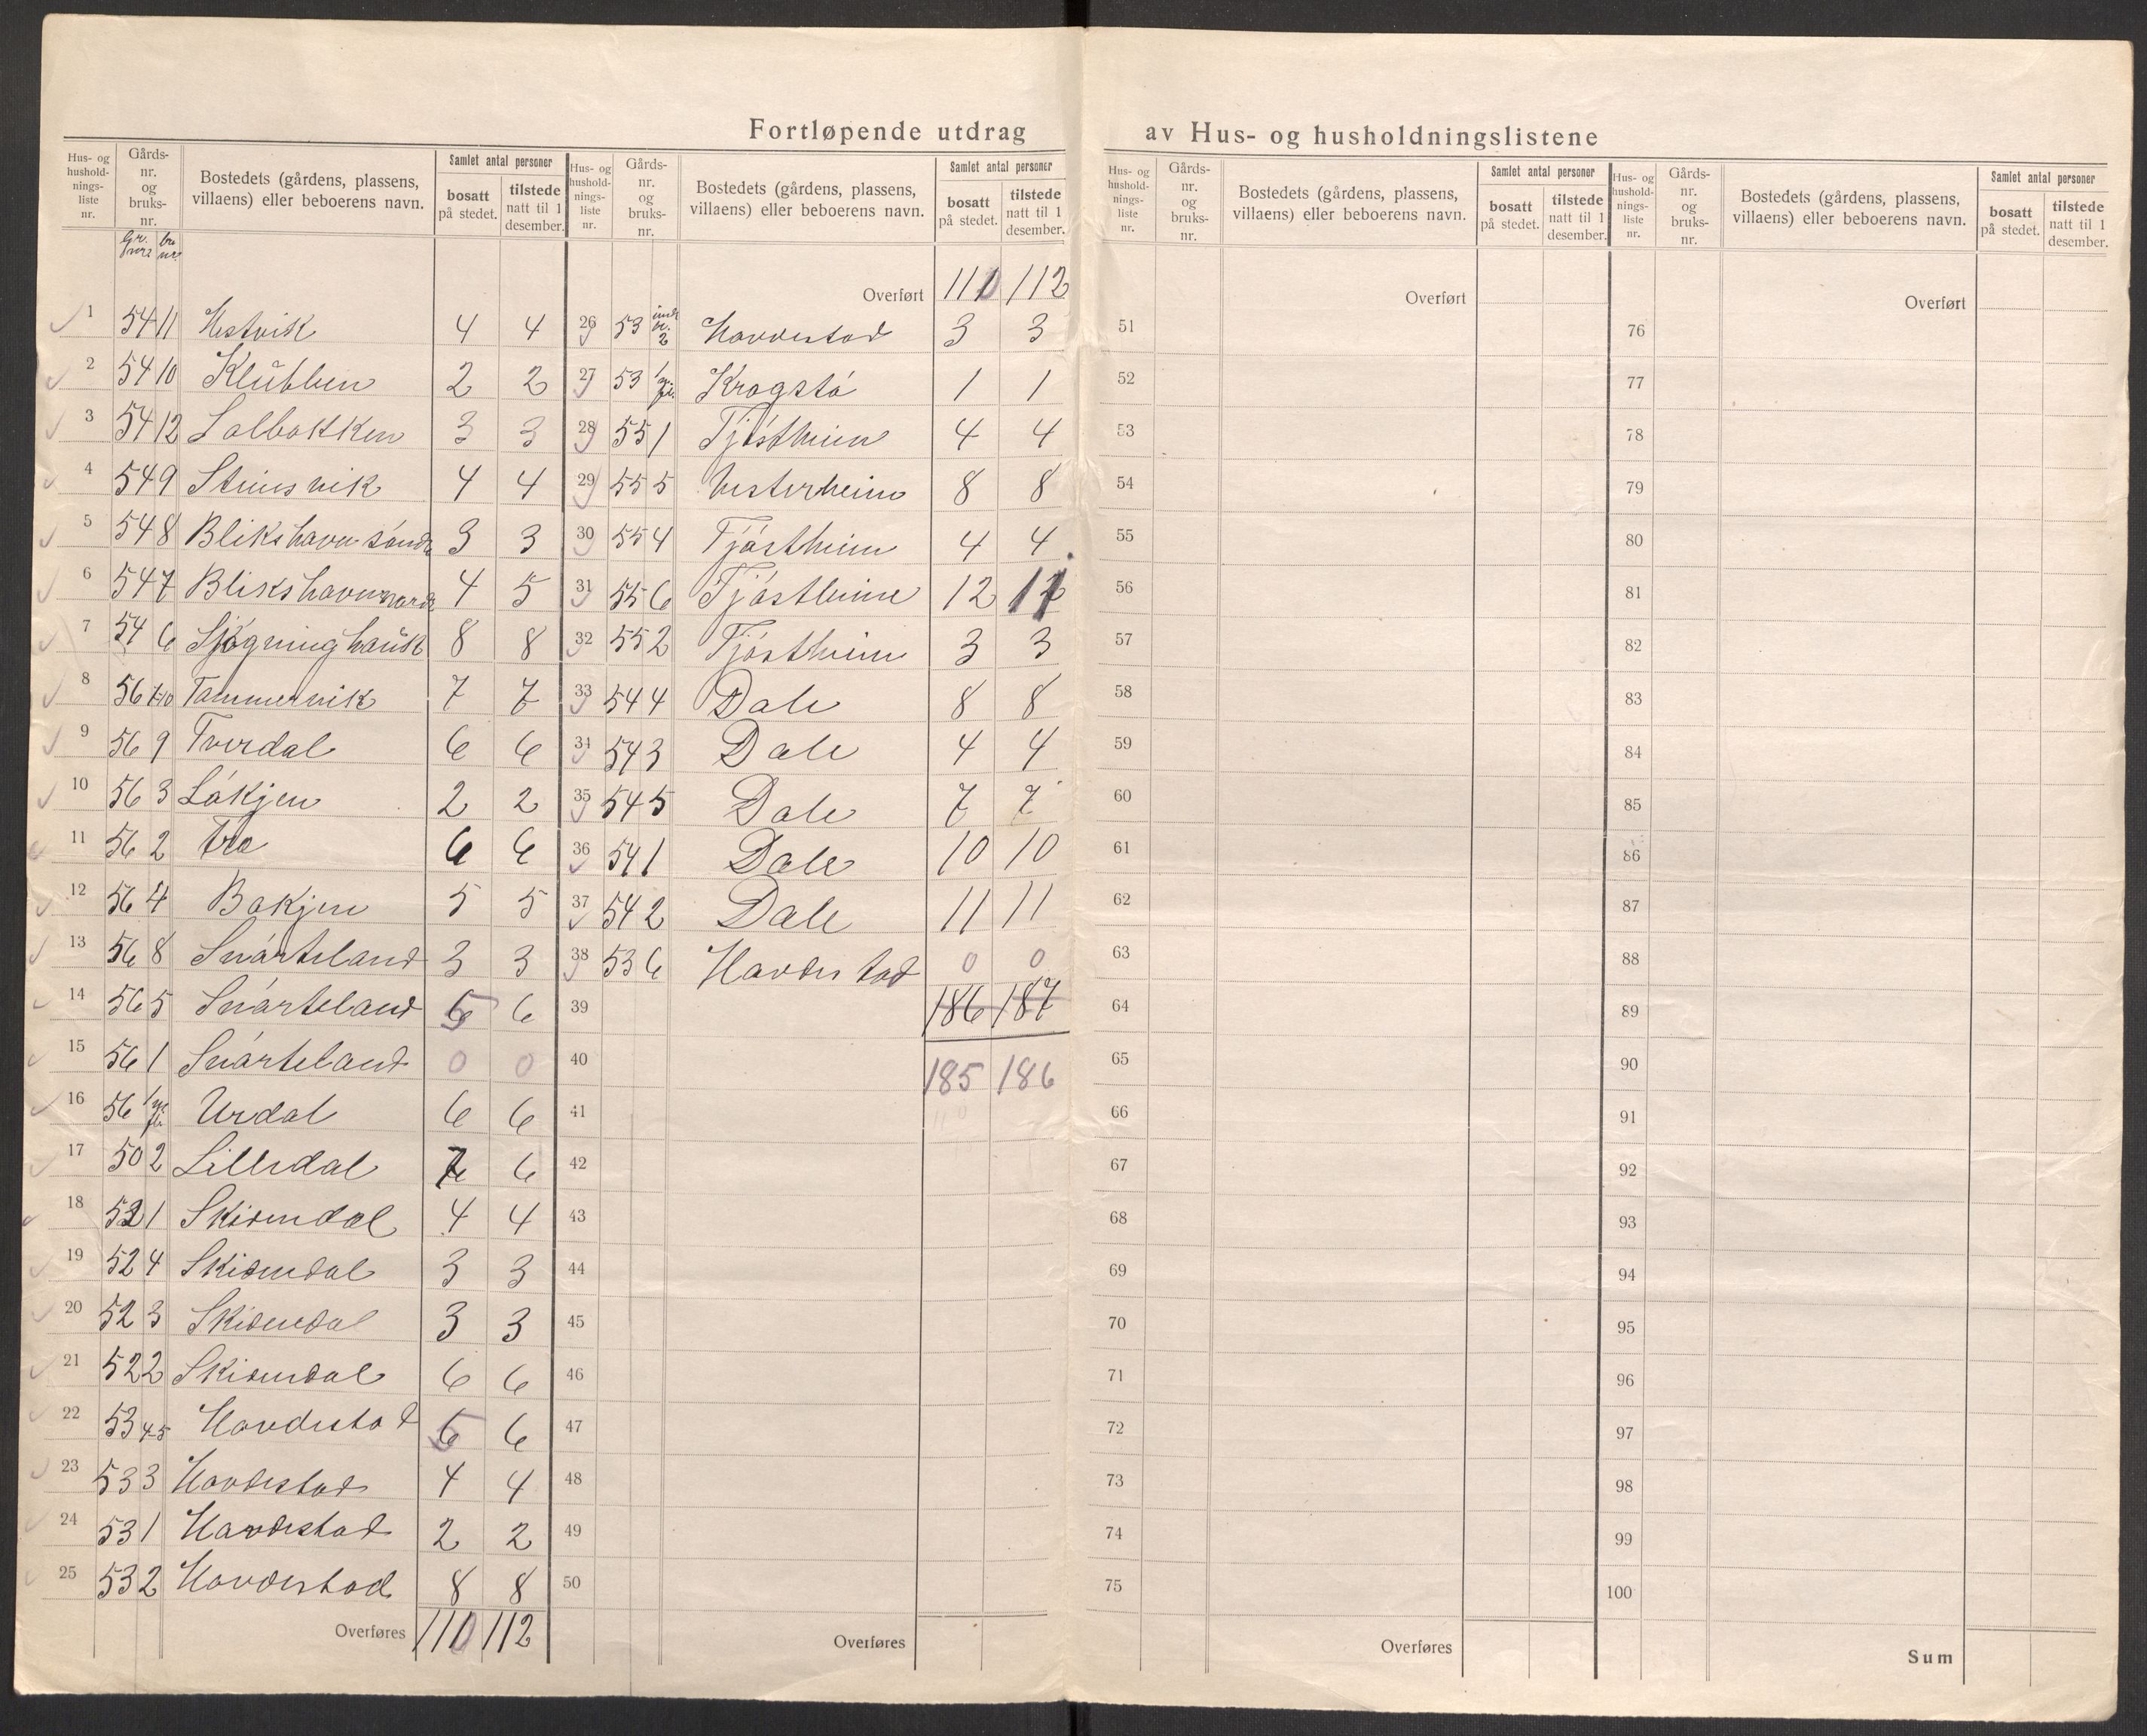 Fortløpende utdrag av Hus- og husholdningslistene
Hus- og husholdnings-liste nr. | Gårds-nr. og bruks-nr. | Bostedets (gårdens, plassens, villaens) eller beboerens navn. | Samlet antal personer | bosatt på stedet. | tilstede natt til 1 desember.
1 54 11 Hestvik 4 4
2 54 10 Klubben 2 2
3 54 12 Solbakken 3 3
4 54 9 Stensvik 4 4
5 54 8 Blikshavn søndr 3 3
6 54 7 Blikshavn nordr 4 5
7 54 6 8 8
8 56 7-10 Tammervik 7 7
9 56 9 Tverdal 6 6
10 56 3 Løkjen 2 2
11 56 2 Tra 6 6
12 56 4 Bakjen 5 5
13 56 8 Snårteland 3 3
14 56 5 Snårteland 5 6
15 56 1 Snårteland 0 0
16 56 1 Urdal 6 6
17 50 2 Lilledal 7 6
18 52 1 Skiendal 4 4
19 52 4 Skiendal 3 3
20 52 3 Skiendal 3 3
21 52 2 Skiendal 6 6
22 53 4-5 Havdestad 5 6
23 53 3 Havdestad 4 4
24 53 1 Havdestad 2 2
25 53 2 Havdestad 8 8
Overføres 110 112
Hus- og husholdnings-liste nr. | Gårds-nr. og bruks-nr. | Bostedets (gårdens, plassens, villaens) eller beboerens navn. | Samlet antal personer | bosatt på stedet. | tilstede natt til 1 desember.
Overført 110 112
26 53 2 Havdestad 3 3
27 53 1 Kragstå 1 1
28 55 1 Tjøstheim 4 4
29 55 5 Vesterheim 8 8
30 55 4 Tjøstheim 4 4
31 55 6 Tjøstheim 12 12
32 55 2 Tjøstheim 3 3
33 54 4 Dale 8 8
34 54 3 Dale 4 4
35 54 5 Dale 7 7
36 54 1 Dale 10 10
37 54 2 Dale 11 11
38 53 6 Havdestad 0 0
39 186 187
40 185 186
41
42
43
44
45
46
47
48
49
50
Overføres
Hus- og husholdnings-liste nr. | Gårds-nr. og bruks-nr. | Bostedets (gårdens, plassens, villaens) eller beboerens navn. | Samlet antal personer | bosatt på stedet. | tilstede natt til 1 desember.
Overført
51
52
53
54
55
56
57
58
59
60
61
62
63
64
65
66
67
68
69
70
71
72
73
74
75
Overføres
Hus- og husholdnings-liste nr. | Gårds-nr. og bruks-nr. | Bostedets (gårdens, plassens, villaens) eller beboerens navn. | Samlet antal personer | bosatt på stedet. | tilstede natt til 1 desember.
Overført
76
77
78
79
80
81
82
83
84
85
86
87
88
89
90
91
92
93
94
95
96
97
98
99
100
Sum